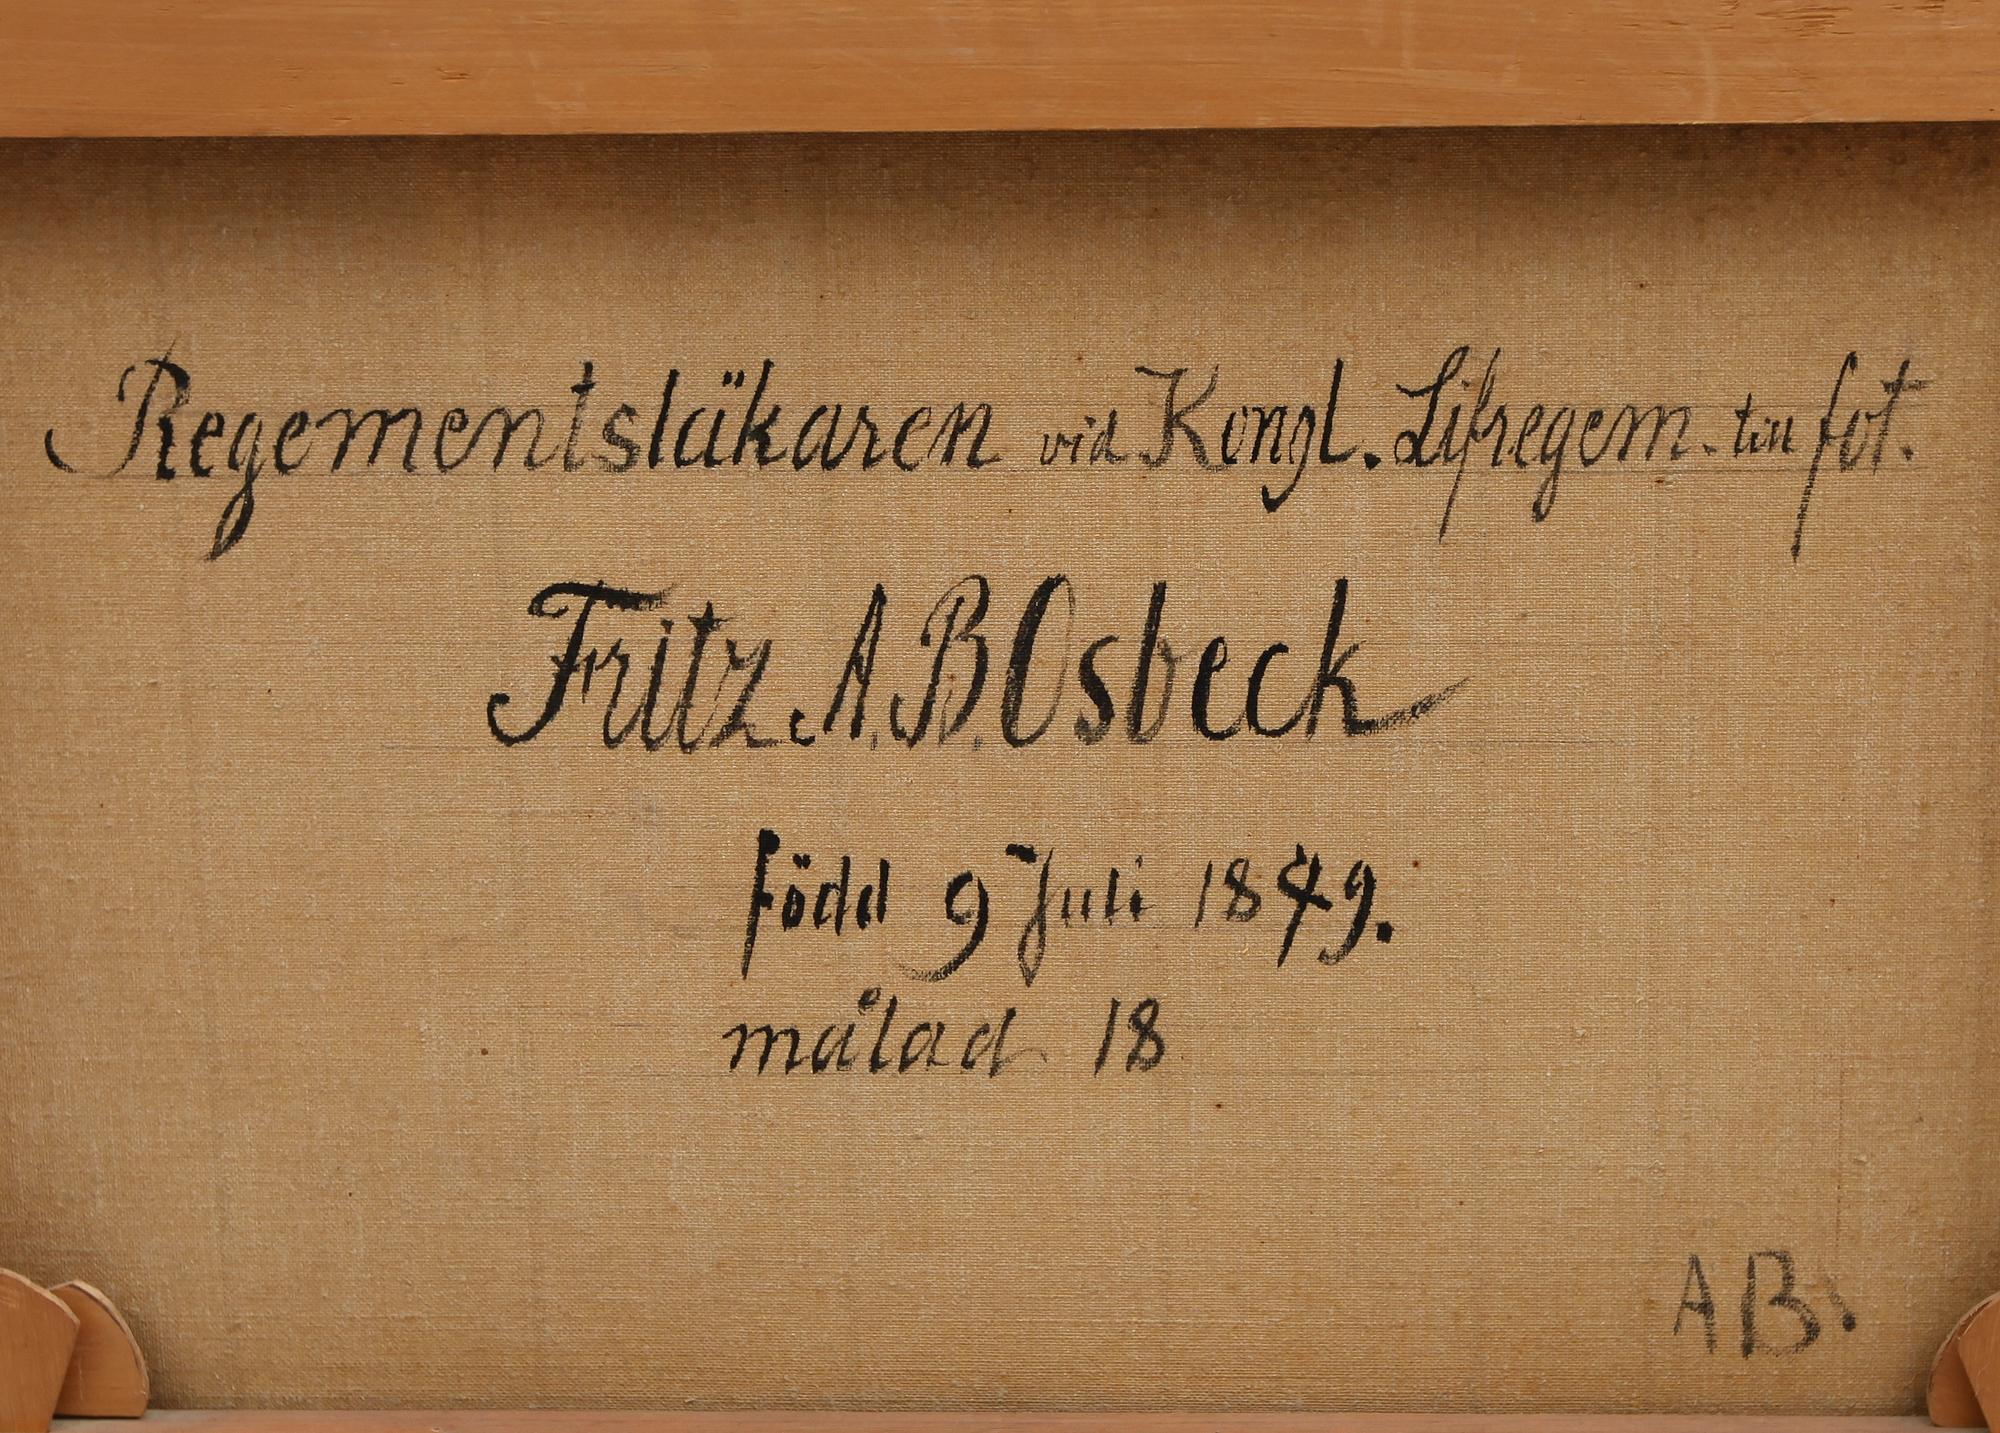 Regementsläkaren vid Kongl. Lifregem. till fot.
Fritz A. B. Osbeck
född 9 Juli 1849.
målad 18
AB.